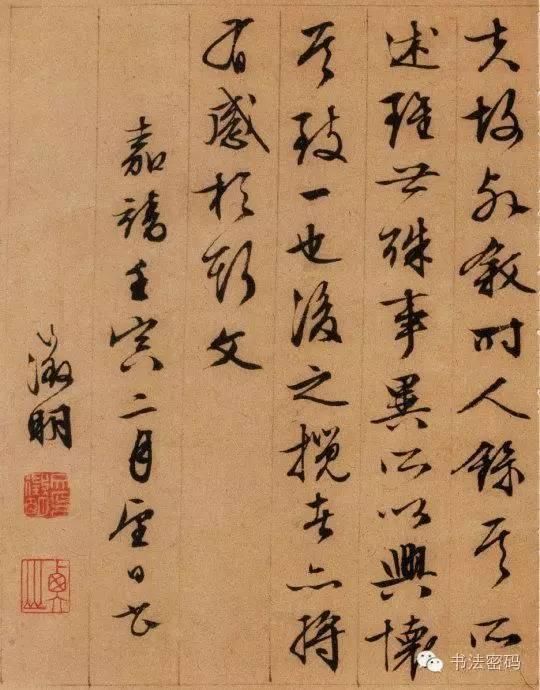 夫故列敘時人錄其所
述雖世殊事異所以興懷
其致一也後之攬者亦將
有感於斯文
嘉靖壬寅二月望日書
徵明
书法密码